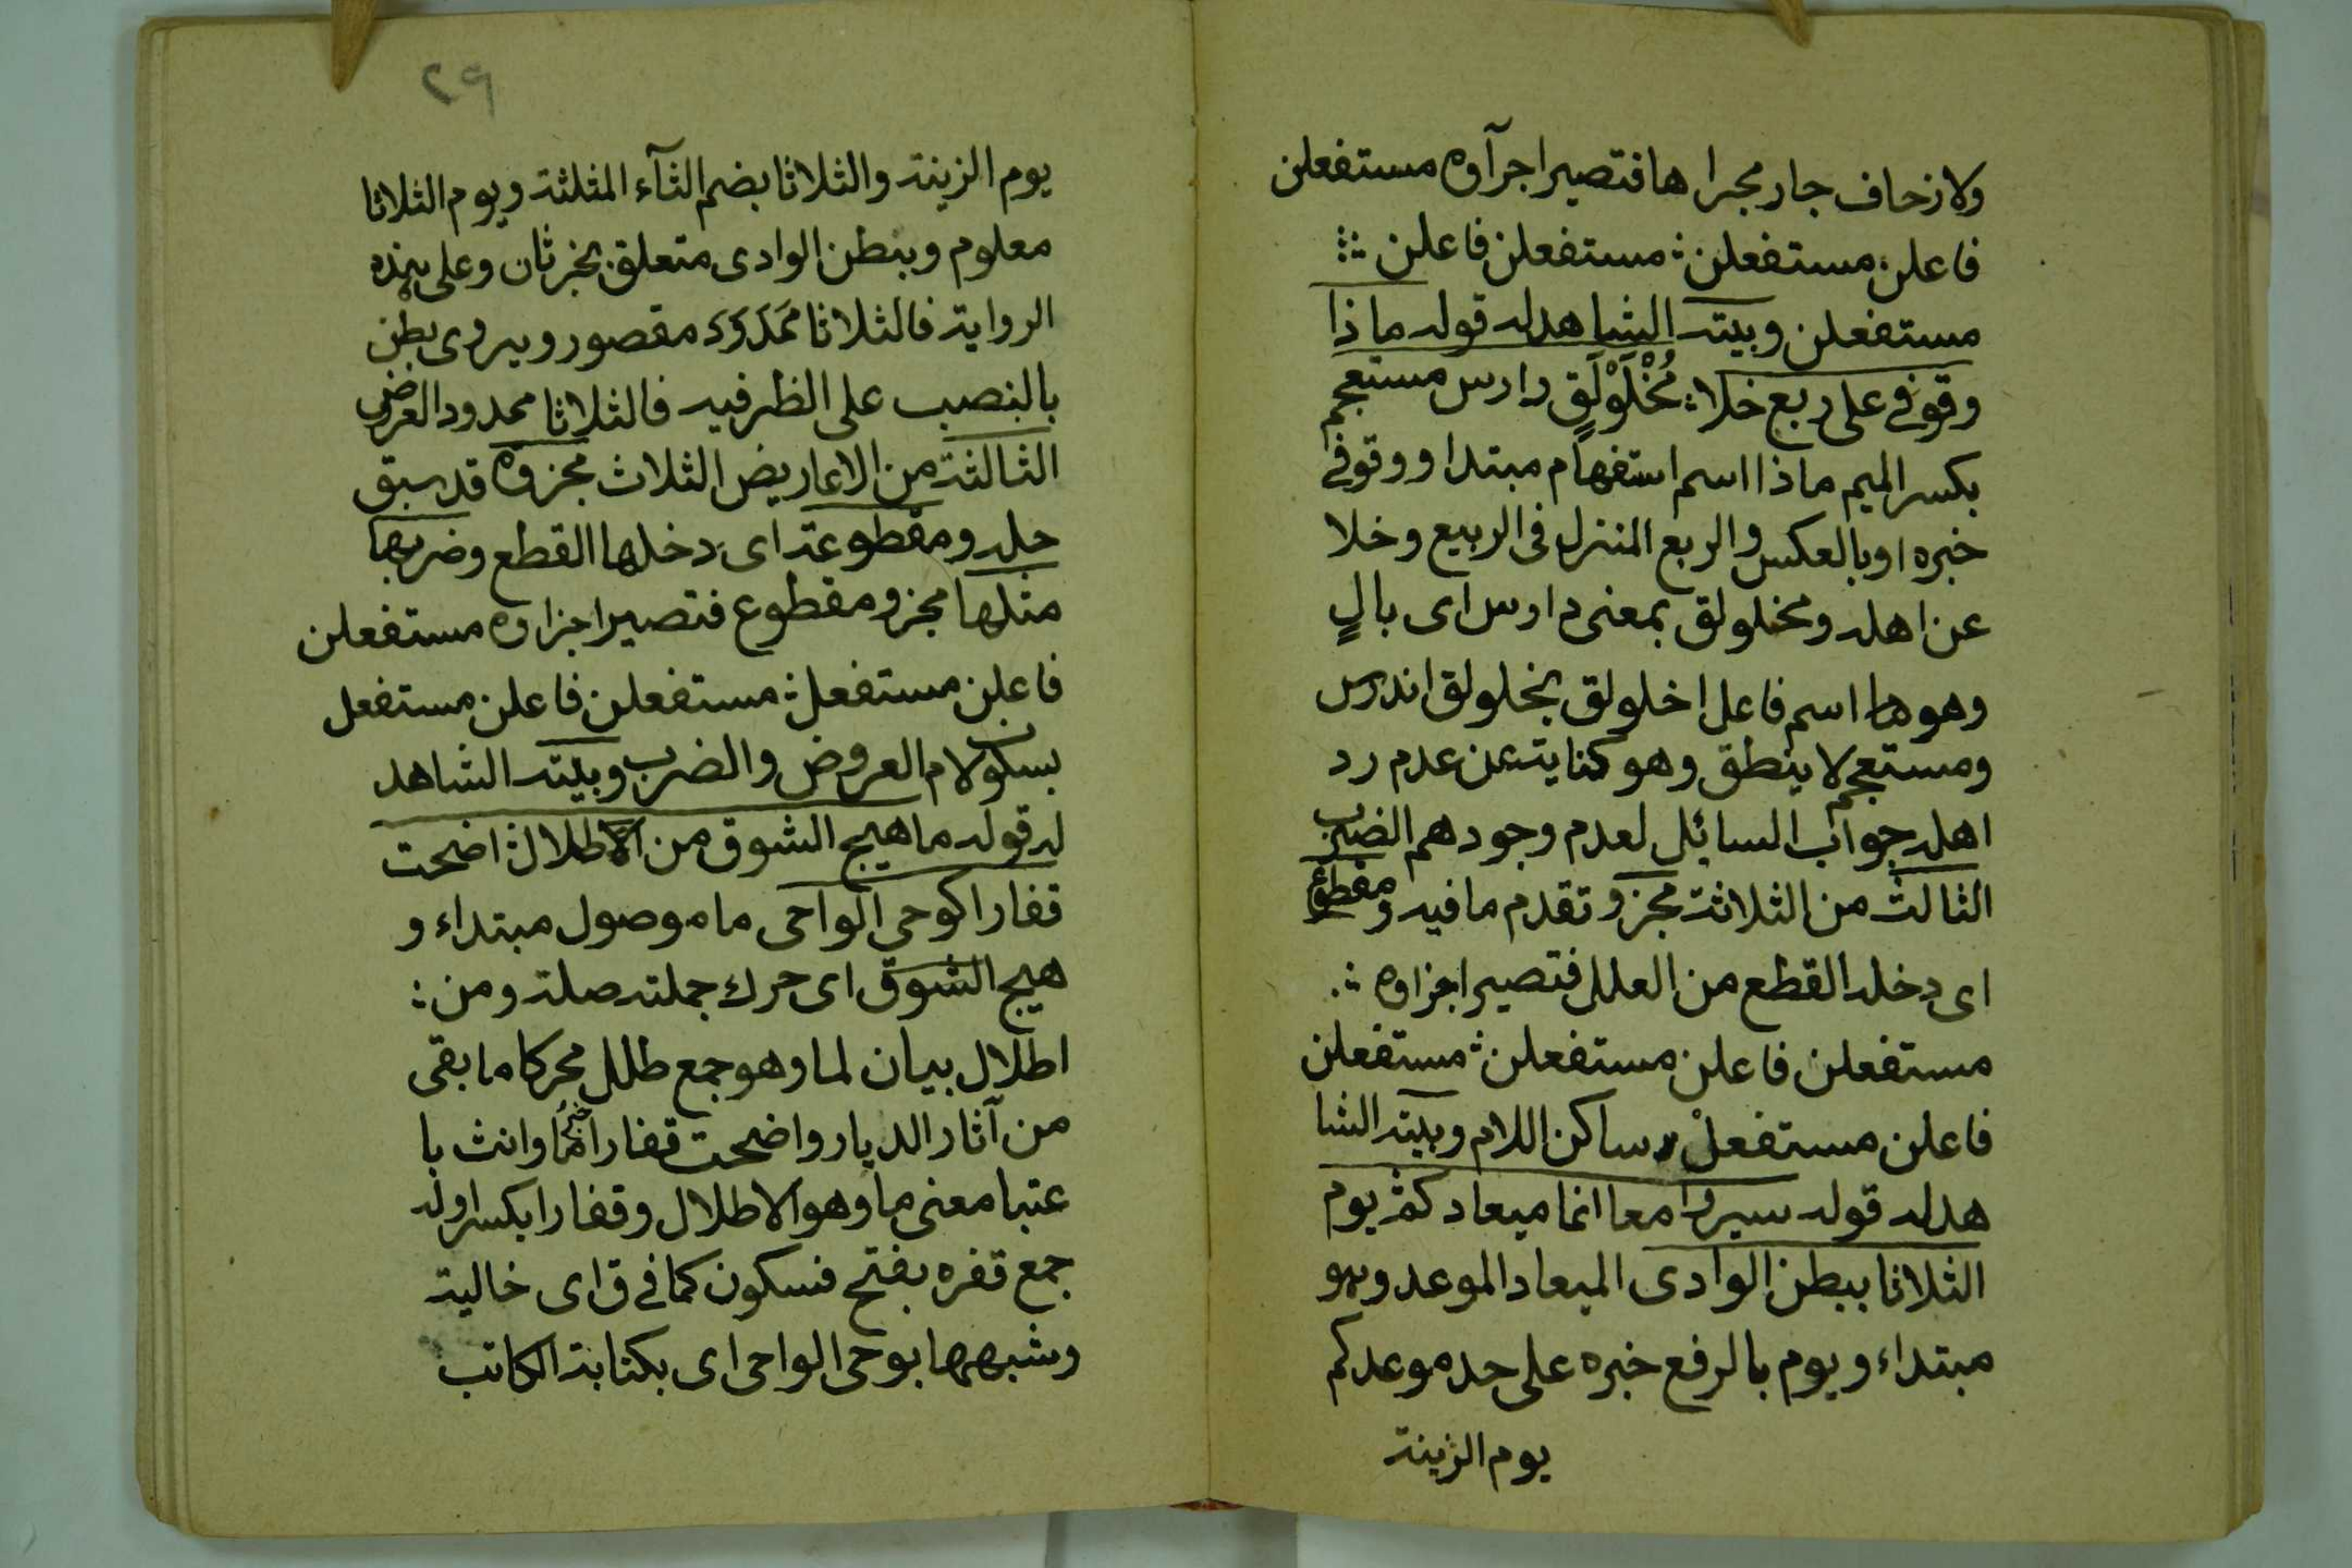 ولا زحاف جار مجرا ها فتصير اجزآوه مستفعلن
فاعلن مستفعلن ؞ مستفعلن فاعلن ؞
مستفعلن وبيته الشاهد له قوله ماذا
وقوفي على ربع خلا ؞ مُخْلَوْلَقٍ دارس مستعجم
بكسر الميم ماذا اسم استفهام مبتدا ووقوفي
خبره او بالعكس والربع المنزل فى الربيع وخلا
عن اهله ومخلولق بمعنى دارس اى بالٍ
وهوها اسم فاعل اخلولق يخلولق اندرس
ومستعجم لا ينطق وهو كناية عن عدم رد
اهله جواب السائل لعدم وجودهم الضرب
الثالث من الثلاثة مجزو تقدم ما فيه ومقطوع
اى دخله القطع من العلل فتصير اجزاوه ؞
مستفعلن فاعلن مستفعلن ؞ مستفعلن
فاعلن مستفعلْ ساكن اللام وبيته الشا
هد له قوله سيروا معا انما ميعادكم يوم
الثلاثا ببطن الوادى الميعاد الموعد وهو
مبتداء ويوم بالرفع خبره على حد موعدكم
يوم الزينة
٢٩
يوم الزينة والثلاثا بضم الثآء المثلثة ويوم الثلاثا
معلوم وببطن الوادى متعلق بخبر ثان وعلى هذه
الرواية فالثلاثا ممدود مقصور ويروى بطن
بالنصب على الظرفيه فالثلاثا ممدود العروض
الثالثة من الاعاريض الثلاث مجزوه قد سبق
حله ومقطوعة اى دخلها القطع وضربها
مثلها مجزو مقطوع فتصير اجزاوه مستفعلن
فاعلن مستفعل ؞ مستفعلن فاعلن مستفعل
بسكون لام العروض والضرب وبيته الشاهد
له قوله ما هيج الشوق من الاطلال ؞ اضحت
قفارا كوحي الواحى ما موصول مبتداء و
هيج الشوق اى حرك جملته صلة ومن ؞
اطلال بيان لما وهو جمع طلل محركا ما بقى
من آثار الديار واضحت قفارا خبرها وانث با
عتبا معنى ما وهو الاطلال وقفارا بكسر اوله
جمع قفره بفتح فسكون كما في ق اى خالية
وشبهها بوحى الواحى اى بكتابة الكاتب